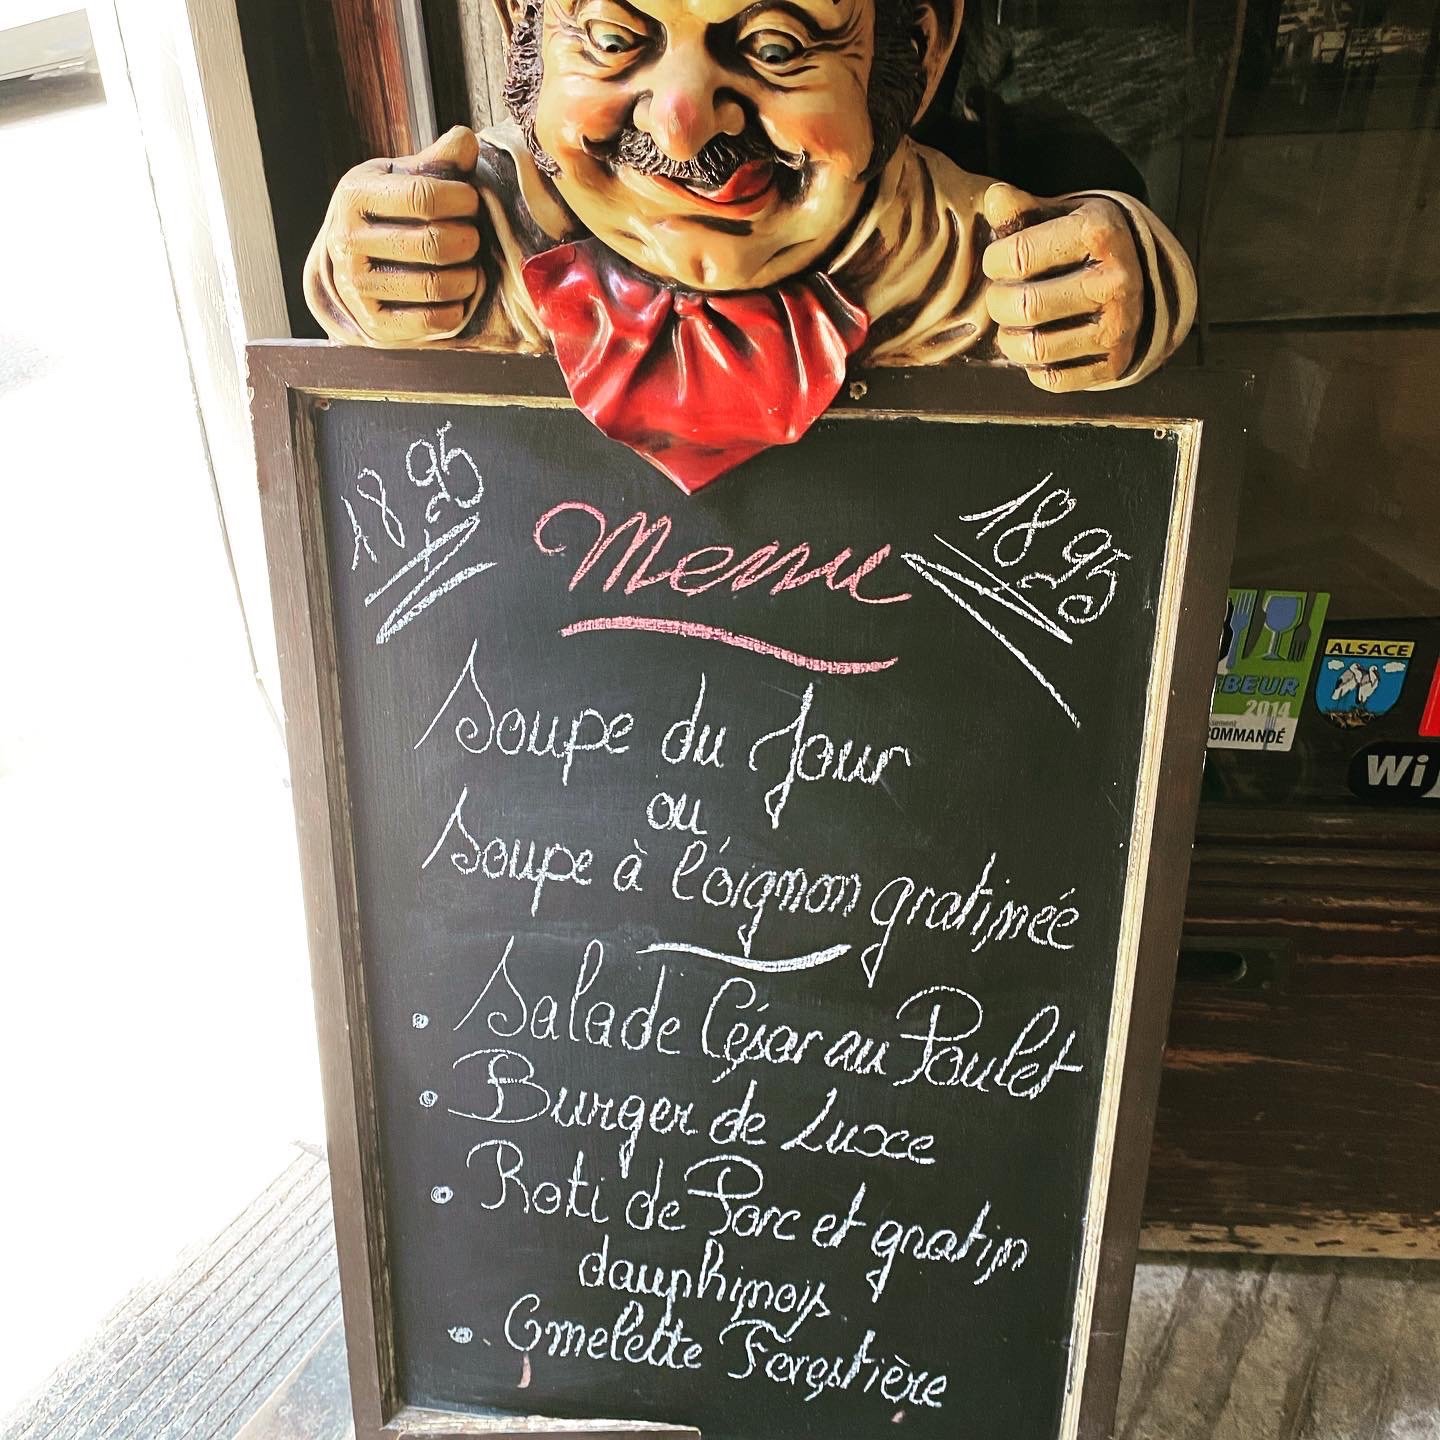 18 95
Menu
18 95
Soupe du Jour
ou
Soupe à l'oignon gratinée
Salade César au Poulet
Burger de Luxe
Roti de Porc et gratin
dauphinois
Omelette Forestière
EBEUR
2014
OMMANDÉ
ALSACE
Wi